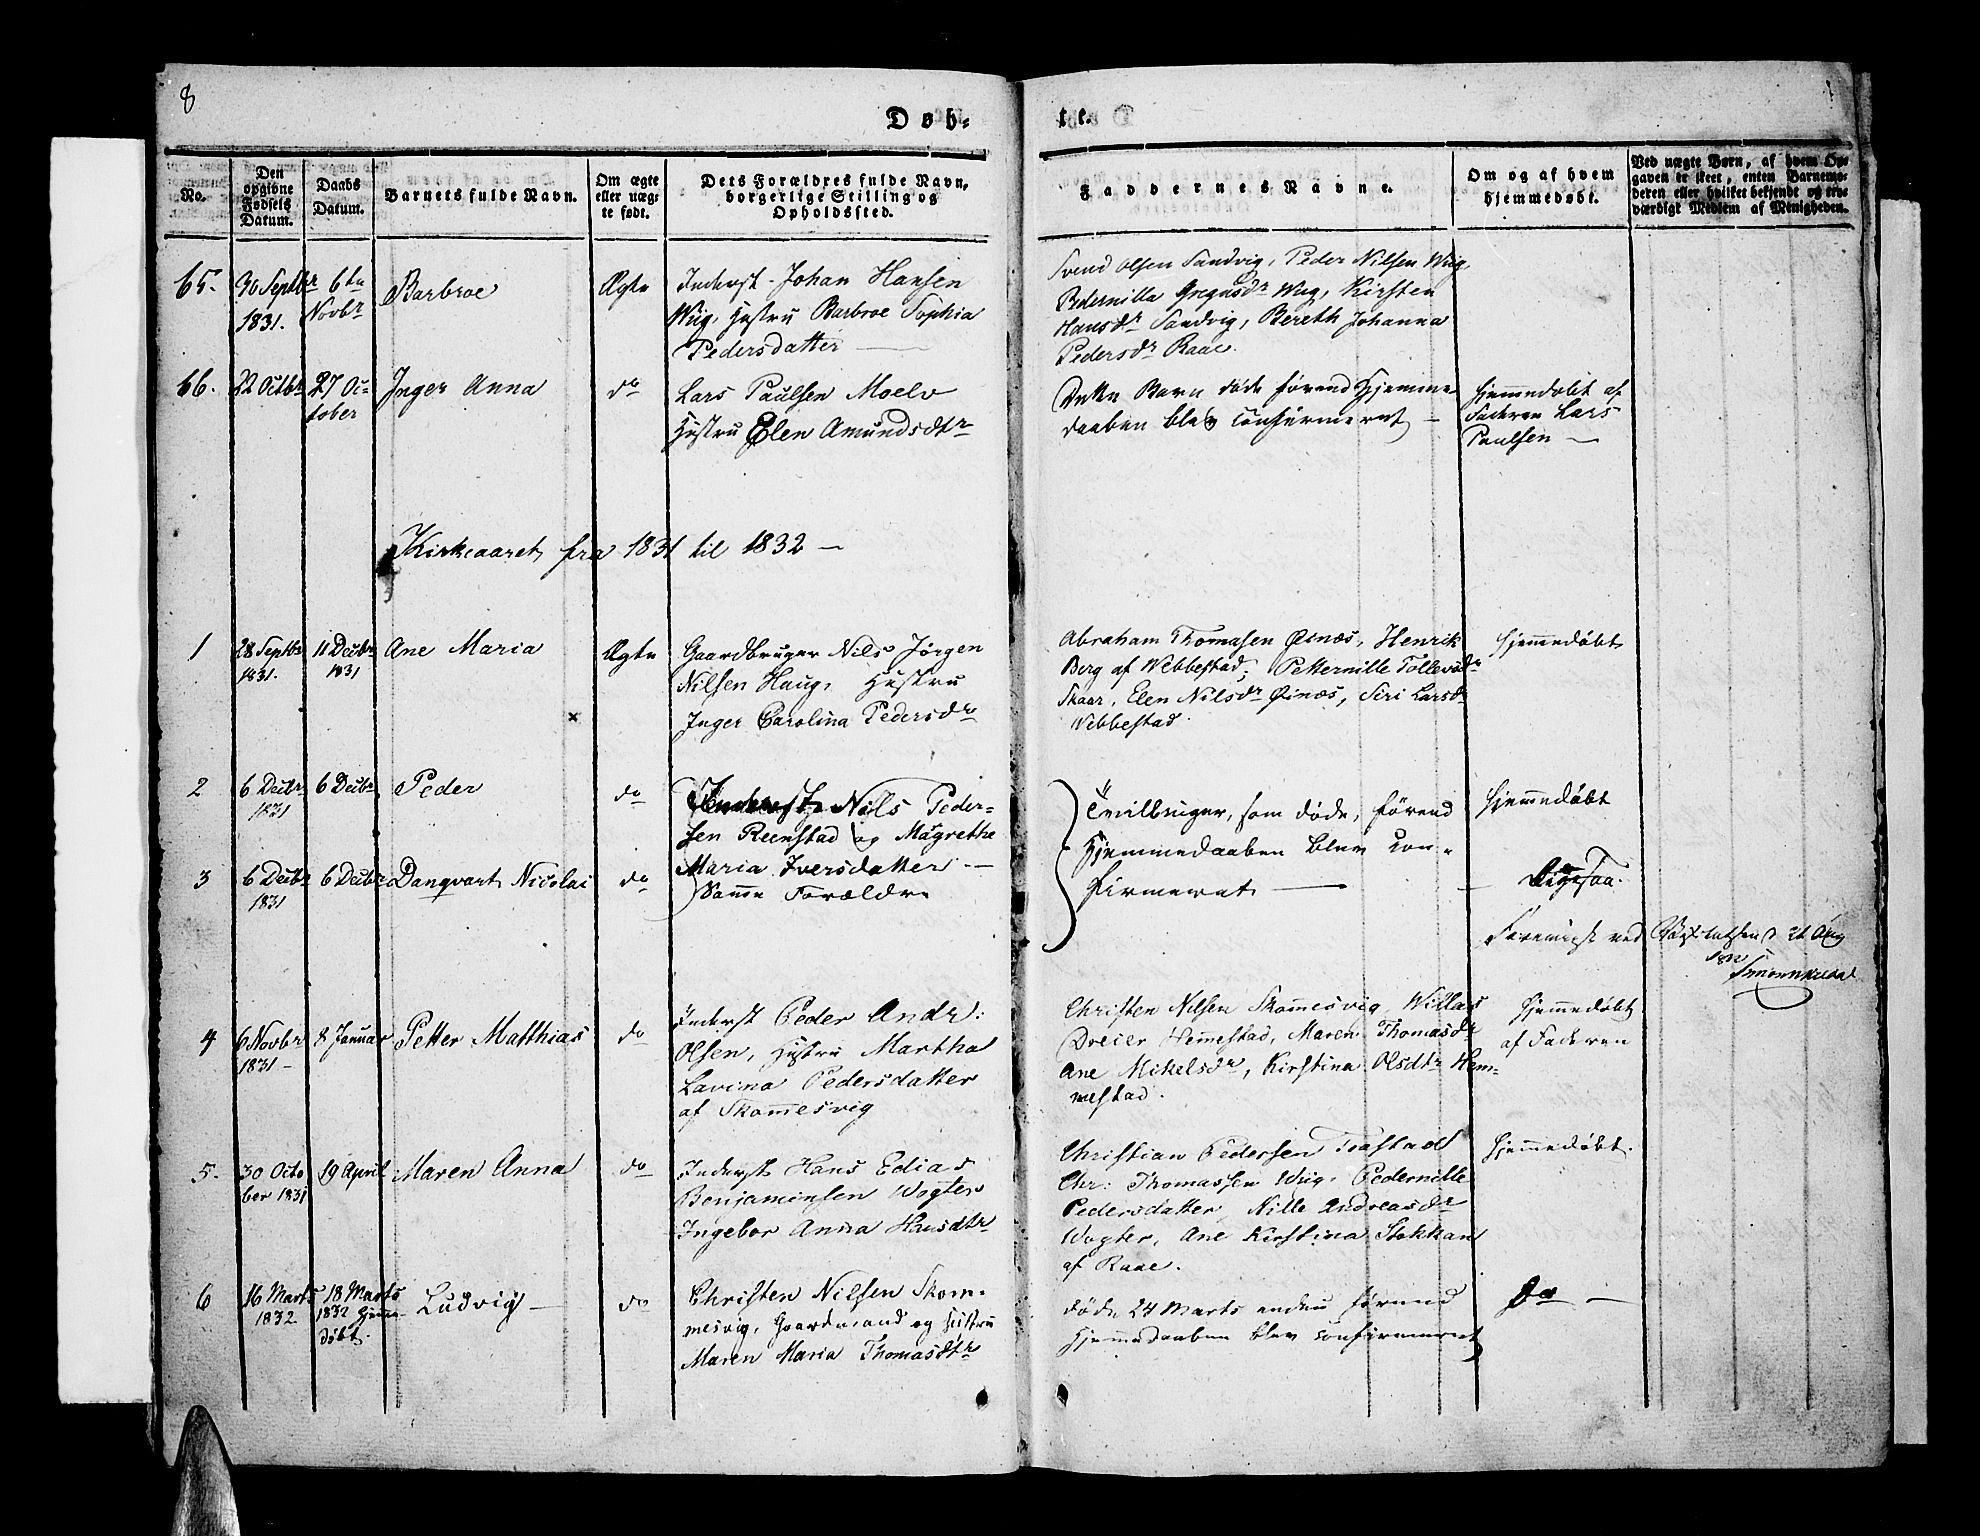 8
Døb-
te.
No.
Den
opgivne
Fødsels
Datum.
Daabs
Datum.
Barnets fulde Navn.
Om ægte
eller uæg-
te født.
Dets Forældres fulde Navn,
borgerlige Stilling og
Opholdssted.
Faddernes Navne.
Om og af hvem
hjemmedøbt.
Ved uægte Børn, af hvem Op-
gaven er skeet, enten Barnemo-
deren eller hvilket bekjendt og tro-
værdigt Medlem af Menigheden.
65.
30 Septbr
1831.
6te
Novbr
Barbroe
Ægte
Inderst Johan Hansen
Wiig, Hustru Barbroe Sophia
Pedersdatter —
Svend Olsen Sandvig, Peder Nilsen Wiig
Pedernilla Gregusdr Wiig, Kirsten
Hansdr Sandvig, Bereth Johanna
Pedersdr Raae.
66.
22 Octbr
27 Oc-
tober
Inger Anna
do
Lars Paulsen Moelv
Hustru Elen Amundsdtr
Dette Barn døde førend Hjemme-
daaben blev confirmeret —
Hjemmedøbt af
Faderen Lars
Paulsen —
Kirkeaaret fra 1831 til 1832 —
1
28 Septbr
1831.
11 Decbr
1831
Ane Maria
Ægte
Gaardbruger Nils Jørgen
Nilsen Haug, Hustru
Inger Carolina Pedersdr
Abraham Thomasen Øinæs, Henrik
Berg af Webbestad, Petternille Tollevsdr
Skaar, Elen Nilsdr Øinæs, Siri Larsdr
Webbestad.
Hjemmedøbt
2
6 Decbr
1831
6 Decbr
Peder
do
Inderst Nils Peder-
sen Reenstad og Magrethe
Maria Iversdatter —
Tvillinger, som døde, førend
Hjemmedaaben blev con-
firmeret —
Hjemmedøbt
3
6 Decbr
1831
6 Decbr
Danqvart Nicolai
do
Samme Forældre
Ligesaa.
4
6 Novbr
1831 —
8 Januar
Petter Matthias
do
Inderst Peder Andr:
Olsen, Hustru Martha
Lavina Pedersdatter
af Skommesvig
Christen Nilsen Skommesvig, Willas
Dreier Hemmestad, Maren Thomasdr
Ane Mikelsdr, Kirstina Olsdtr Hem-
mestad.
Hjemmedøbt
af Faderen
5.
30 Octo
ber 1831
19 April
Maren Anna
do
Inderst Hans Edias
Benjaminsen Vogter
Ingebor Anna Hansdtr
Christian Pedersen Trastad
Chr: Thomassen Wiig, Pedernille
Pedersdatter, Nille Andreasdr
Vogter, Ane Kirstina Stokkan
af Raae.
Hjemmedøbt.
6
16 Marts
1832
18 Marts
1832 Hjem-
døbt.
Ludvig —
do
Christen Nilsen Skom-
mesvig, Gaardmand og Hustru
Maren Maria Thomasdtr
døde 24 Marts endnu førend
Hjemmedaaben blev confirmeret
do —